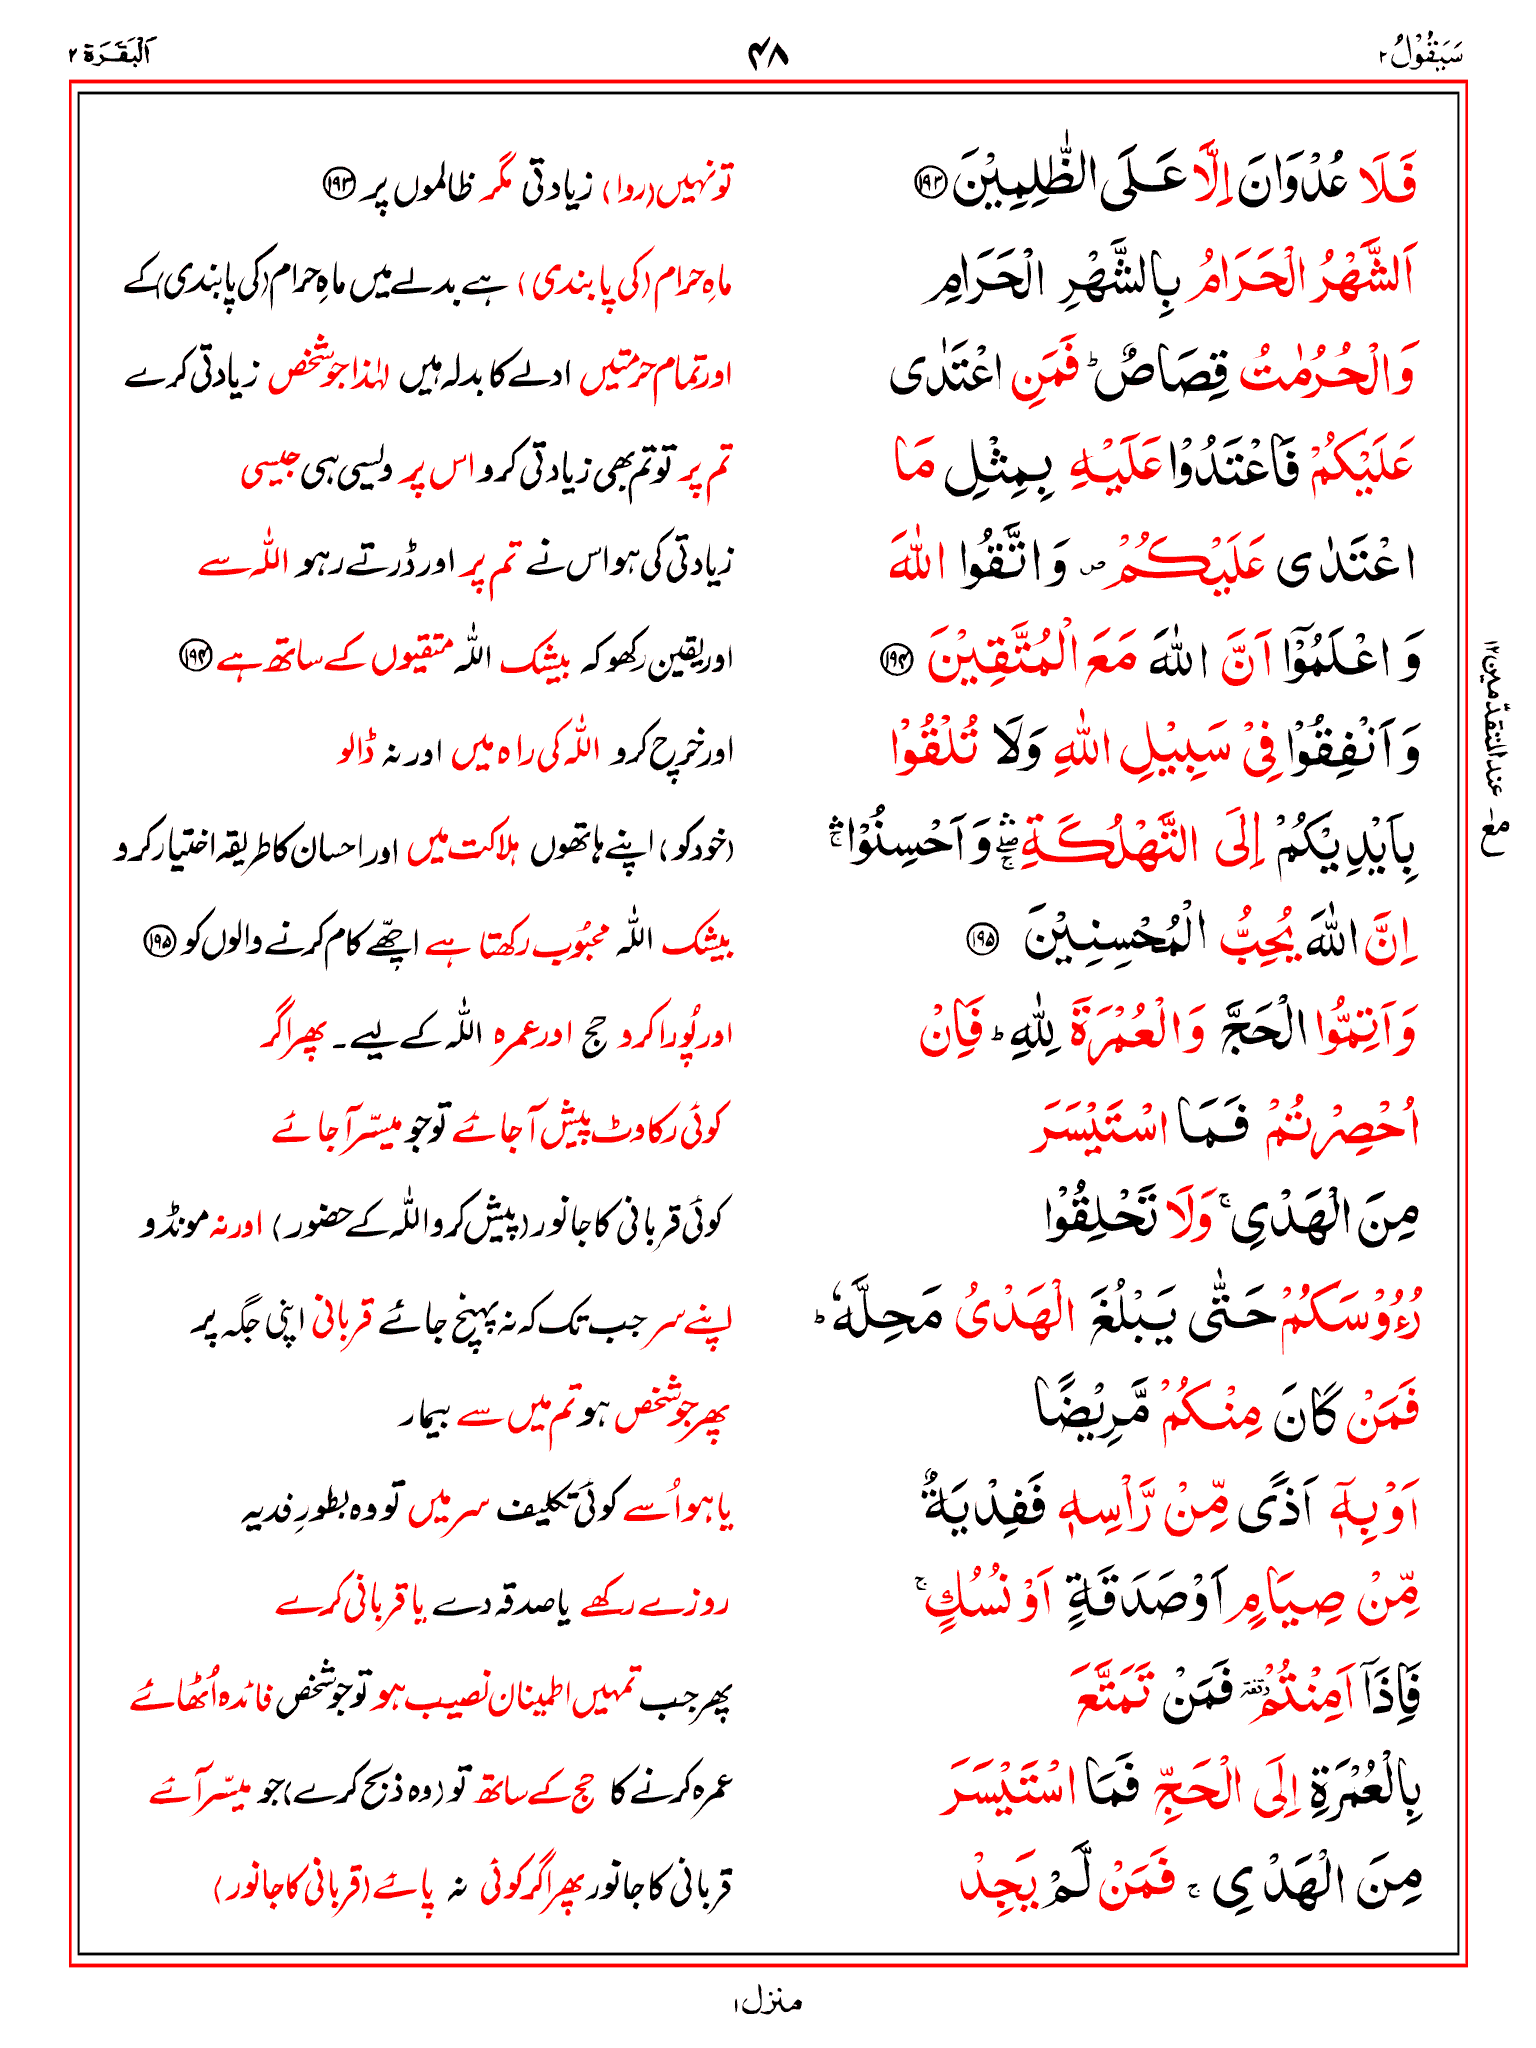 سَيَقُوْلُ ٢
٤٨
اَلْبَقَرَة ٢
فَلَا عُدْوَانَ اِلَّا عَلَى الظّٰلِمِيْنَ ﴿١٩٣﴾
تو نہیں (روا) زیادتی مگر ظالموں پر ﴿١٩٣﴾
اَلشَّهْرُ الْحَرَامُ بِالشَّهْرِ الْحَرَامِ
ماہِ حرام (کی پابندی) ہے بدلے میں ماہِ حرام (کی پابندی) کے
وَالْحُرُمٰتُ قِصَاصٌ ؕ فَمَنِ اعْتَدٰى
اور تمام حرمتیں ادلے کا بدلہ ہیں لہٰذا جو شخص زیادتی کرے
عَلَيْكُمْ فَاعْتَدُوْا عَلَيْهِ بِمِثْلِ مَا
تم پر تو تم بھی زیادتی کرو اس پر ویسی ہی جیسی
اعْتَدٰى عَلَيْكُمْ ۪ وَاتَّقُوا اللّٰهَ
زیادتی کی ہو اس نے تم پر اور ڈرتے رہو اللہ سے
وَاعْلَمُوْٓا اَنَّ اللّٰهَ مَعَ الْمُتَّقِيْنَ ﴿١٩٤﴾
اور یقین رکھو کہ بیشک اللہ متقیوں کے ساتھ ہے ﴿١٩٤﴾
وَاَنْفِقُوْا فِيْ سَبِيْلِ اللّٰهِ وَلَا تُلْقُوْا
اور خرچ کرو اللہ کی راہ میں اور نہ ڈالو
بِاَيْدِيْكُمْ اِلَى التَّهْلُكَةِ ۛۖۚ وَاَحْسِنُوْا ۛۚ
(خود کو) اپنے ہاتھوں ہلاکت میں اور احسان کا طریقہ اختیار کرو
اِنَّ اللّٰهَ يُحِبُّ الْمُحْسِنِيْنَ ﴿١٩٥﴾
بیشک اللہ محبُوب رکھتا ہے اچّھے کام کرنے والوں کو ﴿١٩٥﴾
وَاَتِمُّوا الْحَجَّ وَالْعُمْرَةَ لِلّٰهِ ؕ فَاِنْ
اور پُورا کرو حج اور عمرہ اللہ کے لیے۔ پھر اگر
اُحْصِرْتُمْ فَمَا اسْتَيْسَرَ
کوئی رکاوٹ پیش آ جائے تو جو میسّر آ جائے
مِنَ الْهَدْيِ ۚ وَلَا تَحْلِقُوْا
کوئی قربانی کا جانور (پیش کرو اللہ کے حضور) اور نہ مونڈو
رُءُوْسَكُمْ حَتّٰى يَبْلُغَ الْهَدْيُ مَحِلَّهٗ ؕ
اپنے سر جب تک کہ نہ پہنچ جائے قربانی اپنی جگہ پر
فَمَنْ كَانَ مِنْكُمْ مَّرِيْضًا
پھر جو شخص ہو تم میں سے بیمار
اَوْ بِهٖٓ اَذًى مِّنْ رَّاْسِهٖ فَفِدْيَةٌ
یا ہو اُسے کوئی تکلیف سر میں تو وہ بطورِ فدیہ
مِّنْ صِيَامٍ اَوْ صَدَقَةٍ اَوْ نُسُكٍ ۚ
روزے رکھے یا صدقہ دے یا قربانی کرے
فَاِذَآ اَمِنْتُمْ وقفہ فَمَنْ تَمَتَّعَ
پھر جب تمہیں اطمینان نصیب ہو تو جو شخص فائدہ اُٹھائے
بِالْعُمْرَةِ اِلَى الْحَجِّ فَمَا اسْتَيْسَرَ
عمرہ کرنے کا حج کے ساتھ تو (وہ ذبح کرے) جو میسّر آئے
مِنَ الْهَدْيِ ۚ فَمَنْ لَّمْ يَجِدْ
قربانی کا جانور پھر اگر کوئی نہ پائے (قربانی کا جانور)
مع۔ عند المتقدّمين ١٢
منزل ١